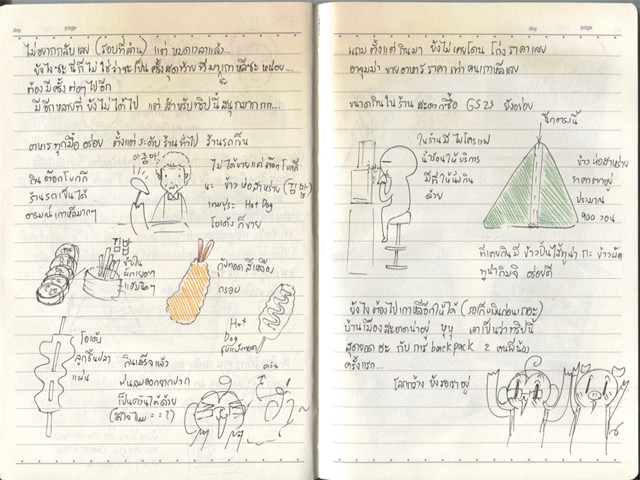 day page
ไม่อยากกลับเลย (ชอบที่ส้าน) แต่ หมดเวลาแล้ว...
ยังไงซะ นี่ก็ไม่ใช่ว่าจะเป็น ครั้งสุดท้ายที่มาเกาหลีซะ หน่อย...
ต้องมี ครั้ง ต่อๆ ไปอีก
มีอีกหลายที่ ยังไม่ได้ไป แต่ สำหรับทริปนี้ สนุกมากกก...
อาหาร ทุกมื้อ อร่อย ตั้งแต่ระดับ ร้าน ทั่วไป ร้านรถเข็น
กิน ต๊อกโบกกี
ร้านรถเข็นได้
อารมณ์ เกาหลีมากๆ
ไม่ได้ขายแค่ ต๊อกโบกกี
นะ ข้าวห่อสาหร่าย (김밥)
เทมปุระ Hot Dog
โอเด้ง ก็ขาย
김밥
กุ้งทอด สีเหลือง
กรอบ
Hot
Dog
โอเด้ง
ลูกชิ้นปลา
แผ่น
กินเสร็จแล้ว
พ่นลมออกจากปาก
เป็นควันได้ด้วย
ควัน
day page
แถม ตั้งแต่กินมา ยังไม่เคยโดน โก่งราคาเลย
อาจุมม่า ขายอาหาร ราคา เท่า คนเกาหลีเลย
ขนาดกินใน ร้าน สะดวกซื้อ GS25 ยังอร่อย
ฉีกตรงนี้
ในร้านมี ไมโครเวฟ
น้ำร้อนให้บริการ
มีที่ให้นั่งกิน
ด้วย
ข้าวห่อสาหร่าย
ราคาตกอยู่
ประมาณ
900 วอน
ที่เคยกินมี ข้าวปั้นไส้ทูน่า กะ ข้าวผัด
ทูน่ากิมจิ อร่อยดี
ยังไง ต้องไปเกาหลีอีกให้ได้ (รอเก็บเงินก่อนเถอะ)
บ้านเมืองสะอาดน่าอยู่ หุหุ เอาเป็นว่าทริปนี้
สุดยอด ฮะ กับ การ backpack 2 คนพี่น้อง
ครั้งแรก...
โลกกว้าง ยังรอเราอยู่